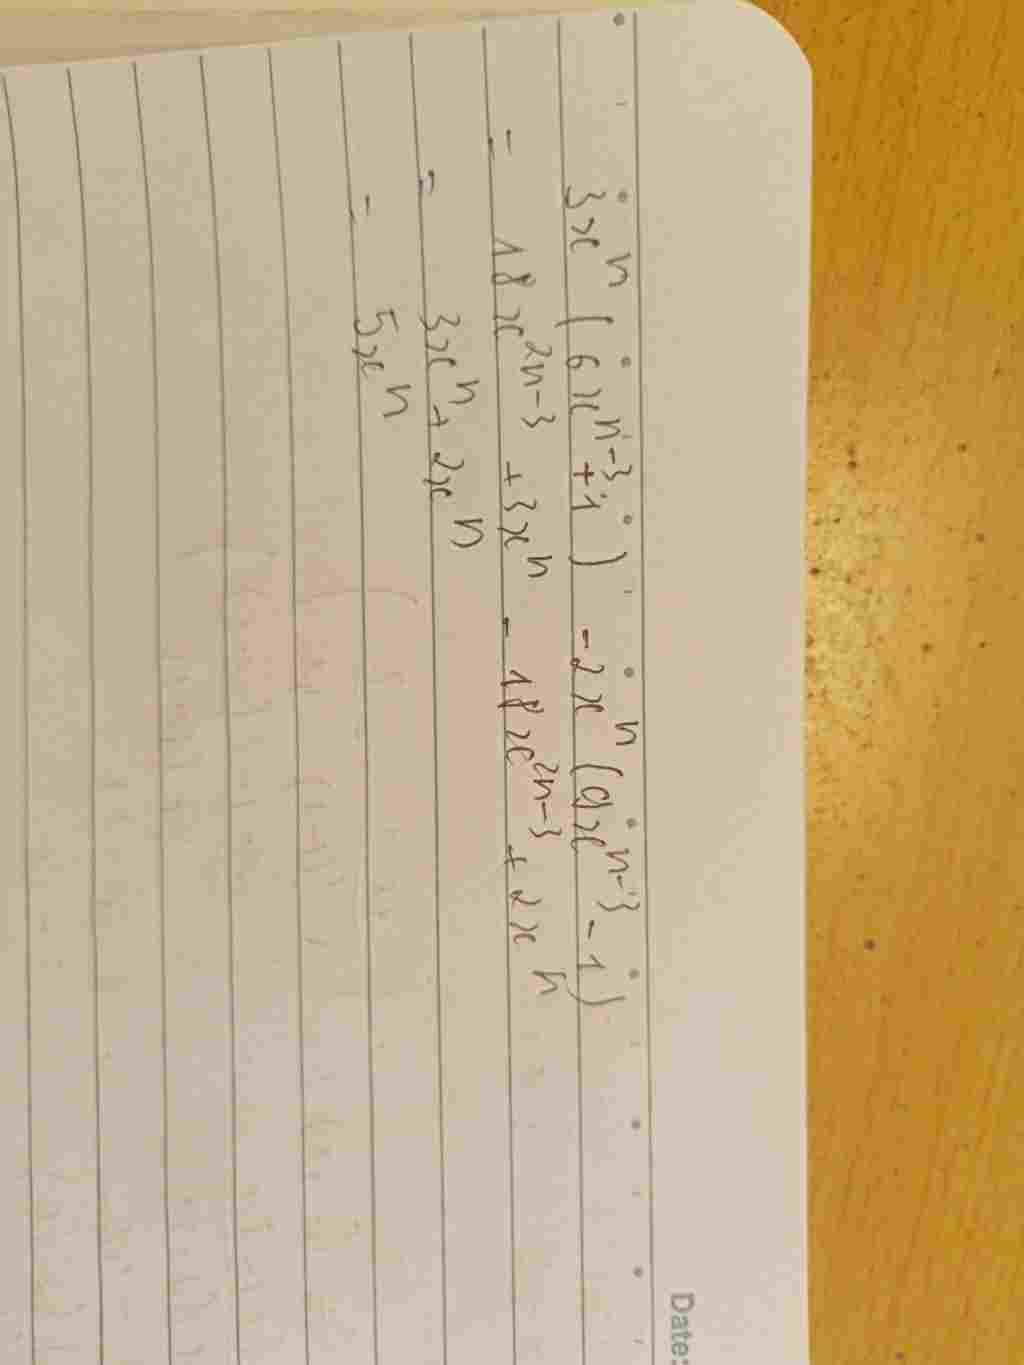 Date:
3xⁿ (6xⁿ⁻³ + 1) - 2xⁿ (9xⁿ⁻³ - 1)
= 18x²ⁿ⁻³ + 3xⁿ - 18x²ⁿ⁻³ + 2xⁿ
= 3xⁿ + 2xⁿ
= 5xⁿ